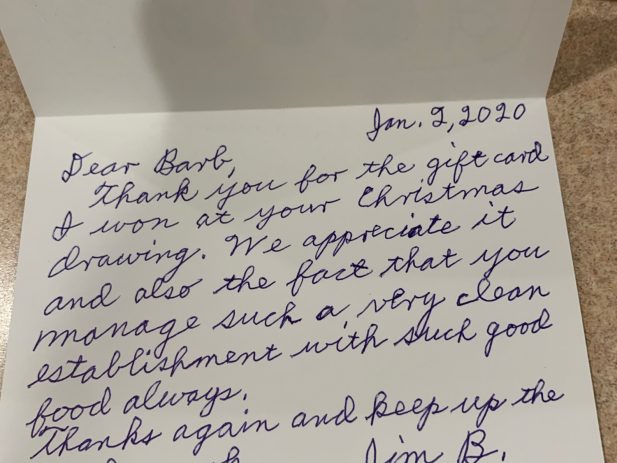 Jan. 2, 2020
Dear Barb,
Thank you for the gift card
I won at your Christmas
drawing. We appreciate it
and also the fact that you
manage such a very clean
establishment with such good
food always.
Thanks again and keep up the
Jim B.